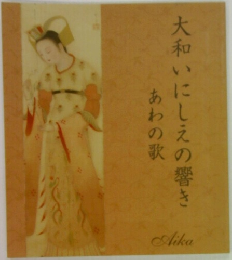 大和いにしえの響き
あわの歌
Aika